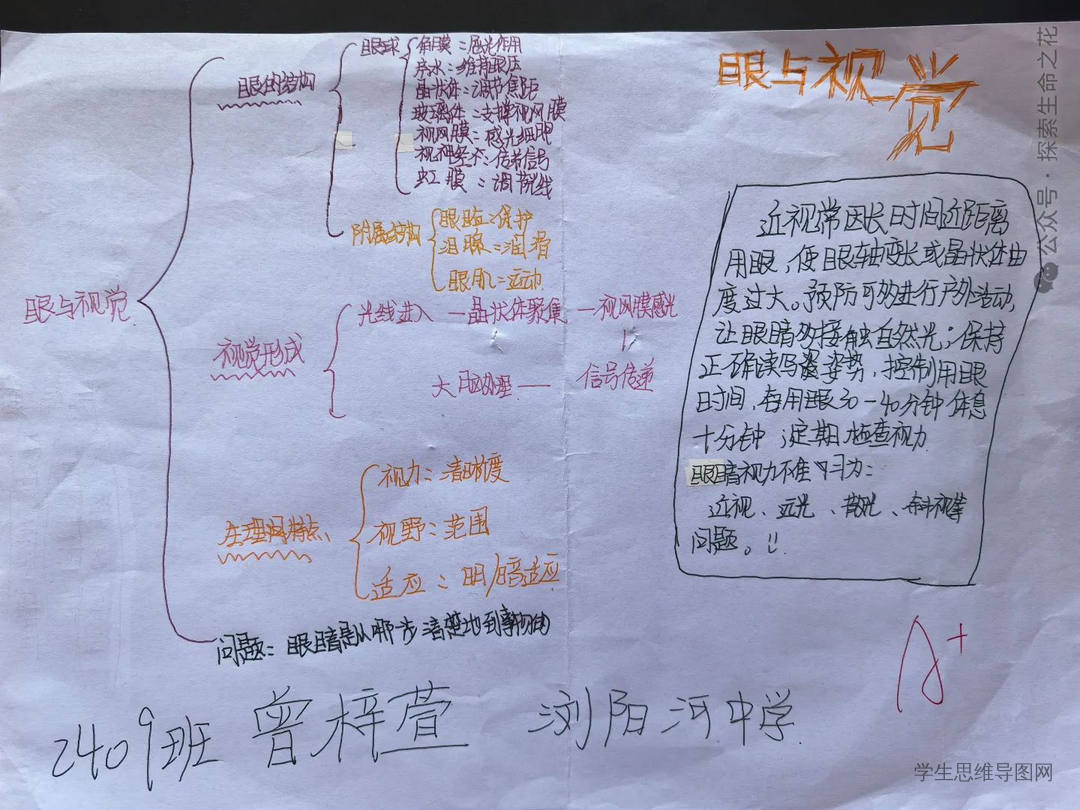 眼与视觉
眼与视觉
眼的结构
眼球
角膜：屈光作用
房水：维持眼压
晶状体：调节焦距
玻璃体：支撑视网膜
视网膜：感光细胞
视神经：传布信号
虹膜：调节光线
附属结构
眼睑：保护
泪腺：润滑
眼肌：运动
视觉形成
光线进入 — 晶状体聚集 — 视网膜感光
大脑处理 — 信号传递
生理特点
视力：清晰度
视野：范围
适应：明/暗适应
问题：眼睛是从哪一步清楚地到事物的
近视常因长时间近距离
用眼，使眼轴变长或晶状体曲
度过大。预防可多进行户外活动，
让眼睛多接触自然光；保持
正确读写姿势，控制用眼
时间，每用眼30-40分钟休息
十分钟；定期检查视力
眼睛视力不佳
近视、远光、散光、斜视等
问题。
A+
2409班 曾梓萱 浏阳河中学
公众号·探索生命之花
学生思维导图网